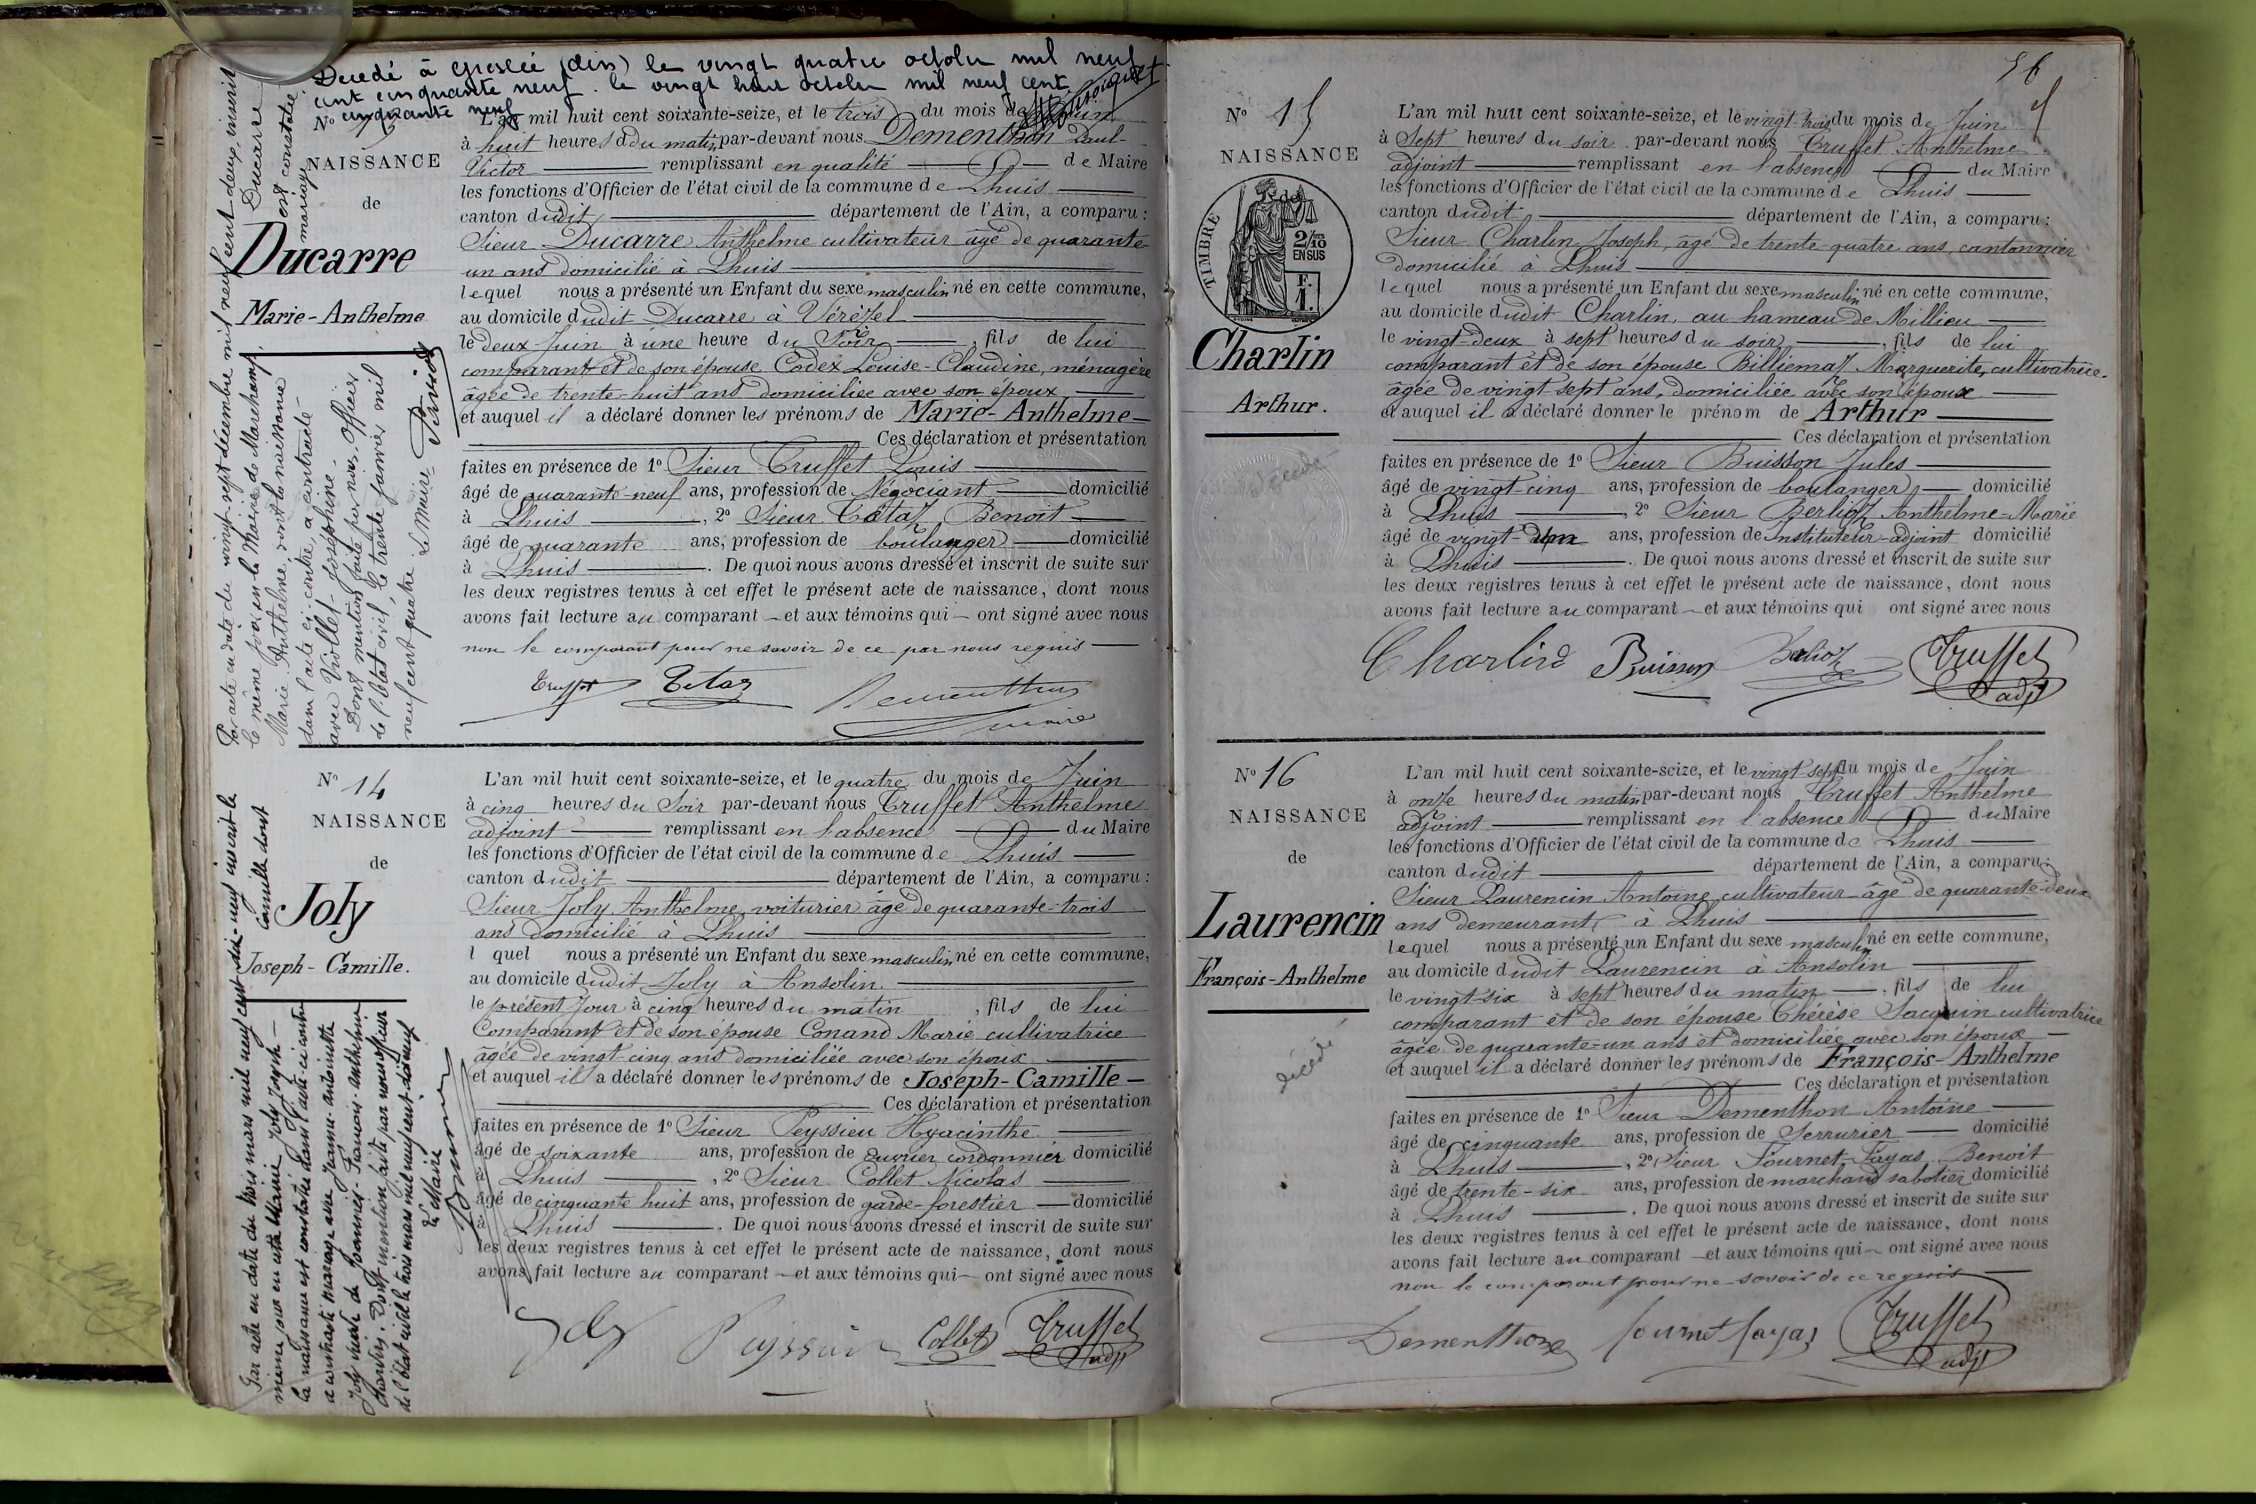 Décédé à Groslée (Ain) le vingt quatre octobre mil neuf
cent cinquante neuf. le vingt huit octobre mil neuf cent
cinquante neuf
No 13
NAISSANCE
de
Ducarre
Marie-Anthelme
Par acte en date du vingt-sept décembre mil neuf cent deux, inscrit
le même jour en la Mairie de Marchamp, Ducarre
Marie Anthelme, dont la naissance est constatée
dans l'acte ci-contre, a contracté mariage
avec Viollet Joséphine.
Dont mention faite par nous, officier
de l'état civil, le trente janvier mil
neuf cent quatre Le Maire
L'an mil huit cent soixante-seize, et le trois du mois de Juin
à huit heures du matin par-devant nous Dementhon Paul-
Victor remplissant en qualité de Maire
les fonctions d'Officier de l'état civil de la commune de Lhuis
canton dudit département de l'Ain, a comparu :
Sieur Ducarre Anthelme cultivateur âgé de quarante-
un ans domicilié à Lhuis
lequel nous a présenté un Enfant du sexe masculin né en cette commune,
au domicile dudit Ducarre à
le deux Juin à une heure du Soir, fils de lui
comparant et de son épouse Codex Louise-Claudine, ménagère
âgée de trente-huit ans domiciliée avec son époux
et auquel il a déclaré donner les prénoms de Marie-Anthelme
Ces déclaration et présentation
faites en présence de 1o Sieur Truffet Louis
âgé de quarante-neuf ans, profession de Négociant domicilié
à Lhuis, 2o Sieur Tétaz Benoît
âgé de quarante ans, profession de boulanger domicilié
à Lhuis. De quoi nous avons dressé et inscrit de suite sur
les deux registres tenus à cet effet le présent acte de naissance, dont nous
avons fait lecture au comparant et aux témoins qui ont signé avec nous
non le comparant pour ne savoir de ce par nous requis
Truffet Tétaz Dementhon
maire
No 14
NAISSANCE
de
Joly
Joseph-Camille.
Par acte en date du trois mars mil neuf cent dix-neuf inscrit le
même jour en cette Mairie Joly Joseph-Camille dont
la naissance est constatée dans l'acte ci-contre
a contracté mariage avec Jeanne-Antoinette
Joly veuve de François-Anthelme
Dont mention faite par nous officier
de l'état civil le trois mars mil neuf cent dix-neuf
Le Maire
L'an mil huit cent soixante-seize, et le quatre du mois de Juin
à cinq heures du Soir par-devant nous Truffet Anthelme
adjoint remplissant en l'absence du Maire
les fonctions d'Officier de l'état civil de la commune de Lhuis
canton dudit département de l'Ain, a comparu :
Sieur Joly Anthelme voiturier âgé de quarante-trois
ans domicilié à Lhuis
l quel nous a présenté un Enfant du sexe masculin né en cette commune,
au domicile dudit Joly à Ansolin
le présent Jour à cinq heures du matin, fils de lui
Comparant et de son épouse Conand Marie cultivatrice
âgée de vingt-cinq ans domiciliée avec son époux
et auquel il a déclaré donner les prénoms de Joseph-Camille
Ces déclaration et présentation
faites en présence de 1o Sieur Peyssieu Hyacinthe
âgé de soixante ans, profession de ouvrier cordonnier domicilié
à Lhuis, 2o Sieur Collet Nicolas
âgé de cinquante huit ans, profession de garde-forestier domicilié
à Lhuis. De quoi nous avons dressé et inscrit de suite sur
les deux registres tenus à cet effet le présent acte de naissance, dont nous
avons fait lecture au comparant et aux témoins qui ont signé avec nous
Joly Peyssieu Collet Truffet
adjt
56
No 15
NAISSANCE
TIMBRE
2/10 EN SUS
F. 1.
Charlin
Arthur.
décédé
L'an mil huit cent soixante-seize, et le vingt-trois du mois de Juin
à Sept heures du soir par-devant nous Truffet Anthelme
adjoint remplissant en l'absence du Maire
les fonctions d'Officier de l'état civil de la commune de Lhuis
canton dudit département de l'Ain, a comparu :
Sieur Charlin Joseph, âgé de trente-quatre ans, cantonnier
domicilié à Lhuis
lequel nous a présenté un Enfant du sexe masculin né en cette commune,
au domicile dudit Charlin, au hameau de Millieu
le vingt-deux à sept heures du soir, fils de lui
comparant et de son épouse Billiemaz Marguerite, cultivatrice
âgée de vingt sept ans, domiciliée avec son époux
et auquel il a déclaré donner le prénom de Arthur
Ces déclaration et présentation
faites en présence de 1o Sieur Buisson Jules
âgé de vingt-cinq ans, profession de boulanger domicilié
à Lhuis, 2o Sieur Berlioz Anthelme-Marie
âgé de vingt- ans, profession de Instituteur-adjoint domicilié
à Lhuis. De quoi nous avons dressé et inscrit de suite sur
les deux registres tenus à cet effet le présent acte de naissance, dont nous
avons fait lecture au comparant et aux témoins qui ont signé avec nous
Charlin Buisson Berlioz Truffet
adjt
No 16
NAISSANCE
de
Laurencin
François-Anthelme
décédé
L'an mil huit cent soixante-seize, et le vingt sept du mois de Juin
à onze heures du matin par-devant nous Truffet Anthelme
adjoint remplissant en l'absence du Maire
les fonctions d'Officier de l'état civil de la commune de Lhuis
canton dudit département de l'Ain, a comparu :
Sieur Laurencin Antoine cultivateur âgé de quarante-deux
ans demeurant à Lhuis
lequel nous a présenté un Enfant du sexe masculin né en cette commune,
au domicile dudit Laurencin à Ansolin
le vingt-six à sept heures du matin, fils de lui
comparant et de son épouse Thérèse Jacquin cultivatrice
âgée de quarante-un ans et domiciliée avec son époux
et auquel il a déclaré donner les prénoms de François-Anthelme
Ces déclaration et présentation
faites en présence de 1o Sieur Dementhon Antoine
âgé de cinquante ans, profession de Serrurier domicilié
à Lhuis, 2o Sieur Fournet-Fayas Benoît
âgé de trente-six ans, profession de marchand sabotier domicilié
à Lhuis. De quoi nous avons dressé et inscrit de suite sur
les deux registres tenus à cet effet le présent acte de naissance, dont nous
avons fait lecture au comparant et aux témoins qui ont signé avec nous
non le comparant pour ne savoir de ce requis
Dementhon Fournet fayas Truffet
adjt